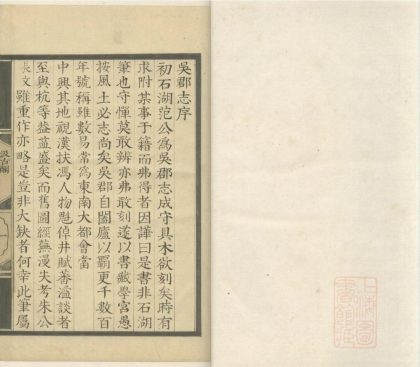 吳郡志序
初石湖范公為吳郡志成守具木欲刻矣時有
求附某事于籍而弗得者因譁曰是書非石湖
筆也守憚莫敢辨亦弗敢刻遂以書藏學宮愚
按風土必志尚矣吳郡自闔廬以霸更千數百
年號稱雖數易常為東南大都會當
中興其地視漢扶馮人物魁倬井賦蕃溢談者
至與杭等蓋益盛矣而舊圖經蕪漫失考朱公
長文雖重作亦略是豈非大缺者何幸此筆屬
汲古閣
上海圖書館藏